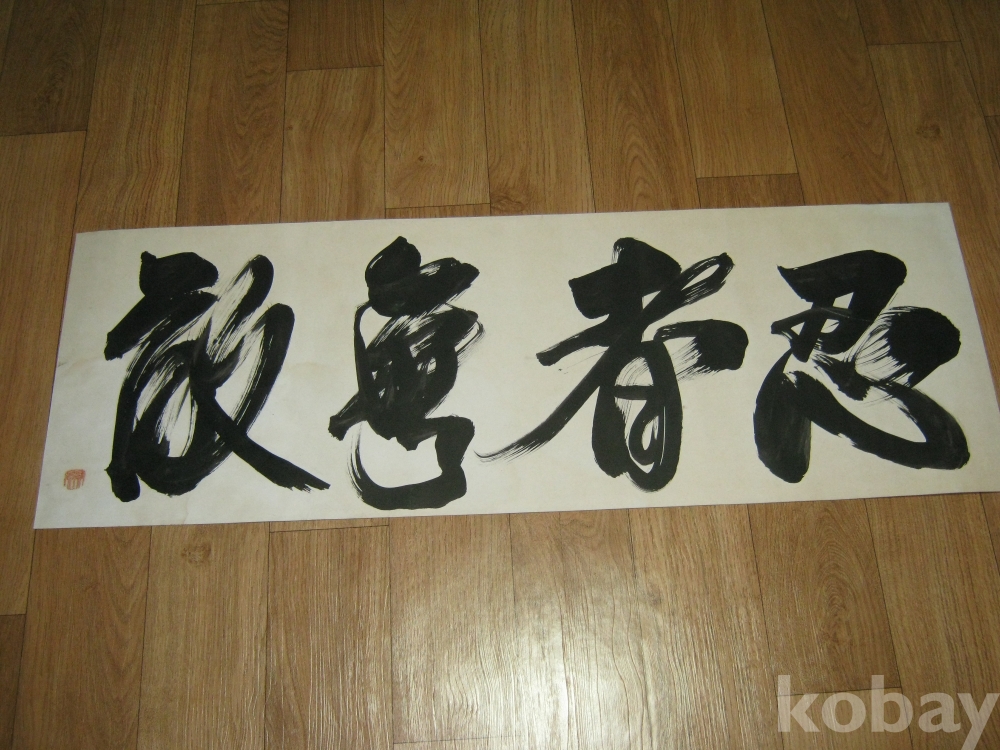 忍者無敵
kobay